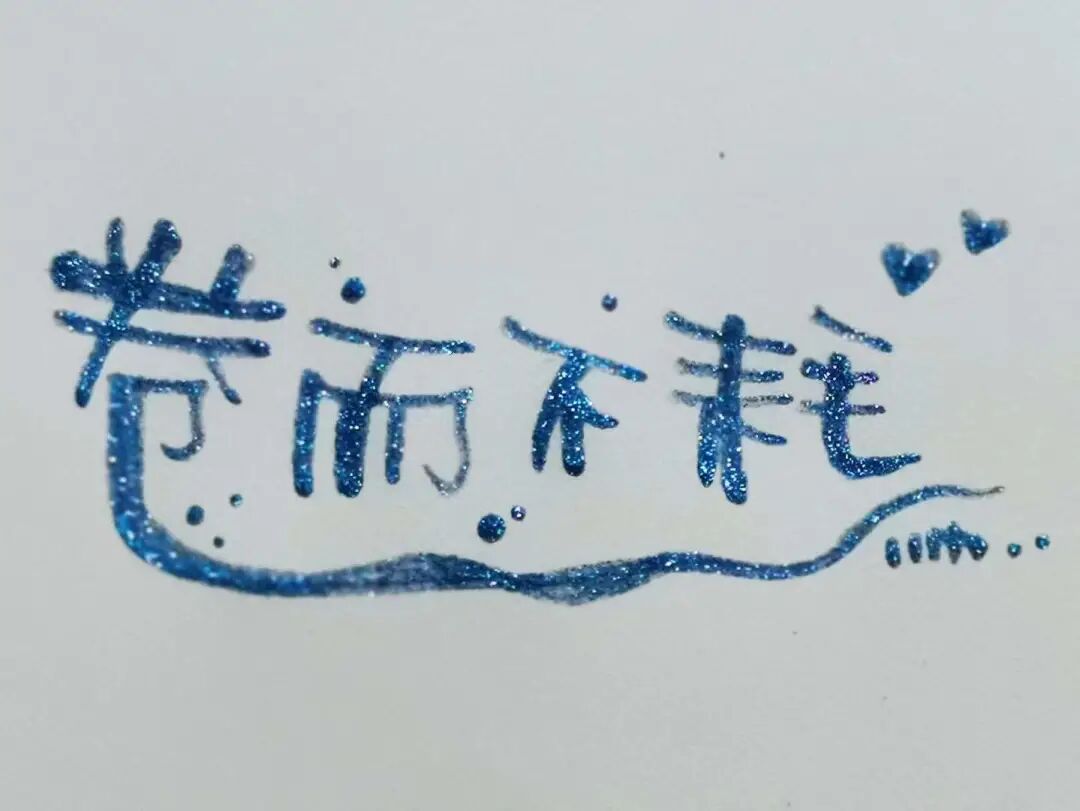 卷而不耗